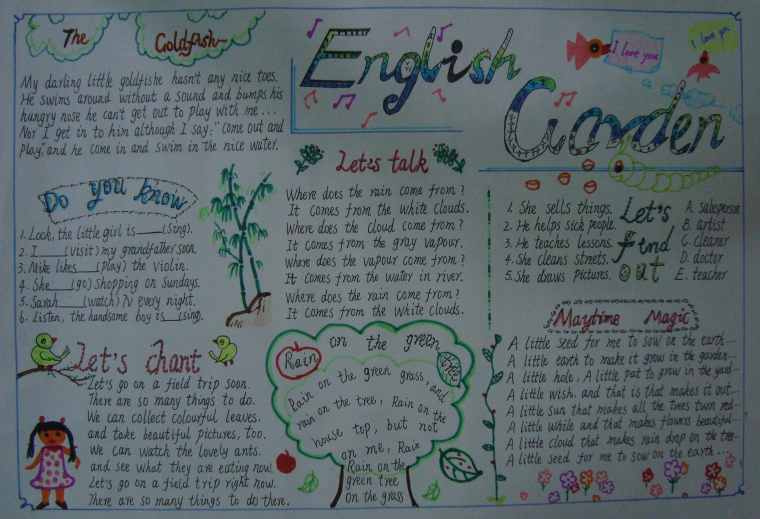 The Goldfish
My darling little goldfishe hasn't any nice toes.
He swims around without a sound and bumps his
hungry nose he can't get out to play with me...
Nor I get in to him although I say: "Come out and
Play" and he come in and swim in the nice water.
English
Garden
I love you
I love you
Do you know
1. Look, the little girl is ___ (sing).
2. I ___ (visit) my grandfather soon.
3. Mike likes ___ (play) the violin.
4. She ___ (go) shopping on Sundays.
5. Sarah ___ (watch) TV every night.
6. Listen, the handsome boy is ___ (sing).
Let's talk
Where does the rain come from?
It comes from the white clouds.
Where does the cloud come from?
It comes from the gray vapour.
Where does the vapour come from?
It comes from the water in river.
Where does the rain come from?
It comes from the white clouds.
Let's find out
1. She sells things.
2. He helps sick people.
3. He teaches lessons.
4. She cleans streets.
5. She draws pictures.
A. salesperson
B. artist
C. cleaner
D. doctor
E. teacher
Let's chant
Let's go on a field trip soon.
There are so many things to do.
We can collect colourful leaves.
and take beautiful pictures, too.
We can watch the lovely ants.
and see what they are eating now.
Let's go on a field trip right now.
There are so many things to do there.
Rain on the green
Rain on the green grass, and
rain on the tree, Rain on the
house top, but not
on me, Rain
Rain on the
green tree
On the grass
Maytime Magic
A little seed for me to sow on the earth...
A little earth to make it grow in the garden...
A little hole, A little pat to grow in the yard...
A little wish, and that is that makes it out...
A little sun that makes all the trees turn red...
A little while and that makes flowers beautiful...
A little cloud that makes rain drop on the tree...
A little seed for me to sow on the earth...